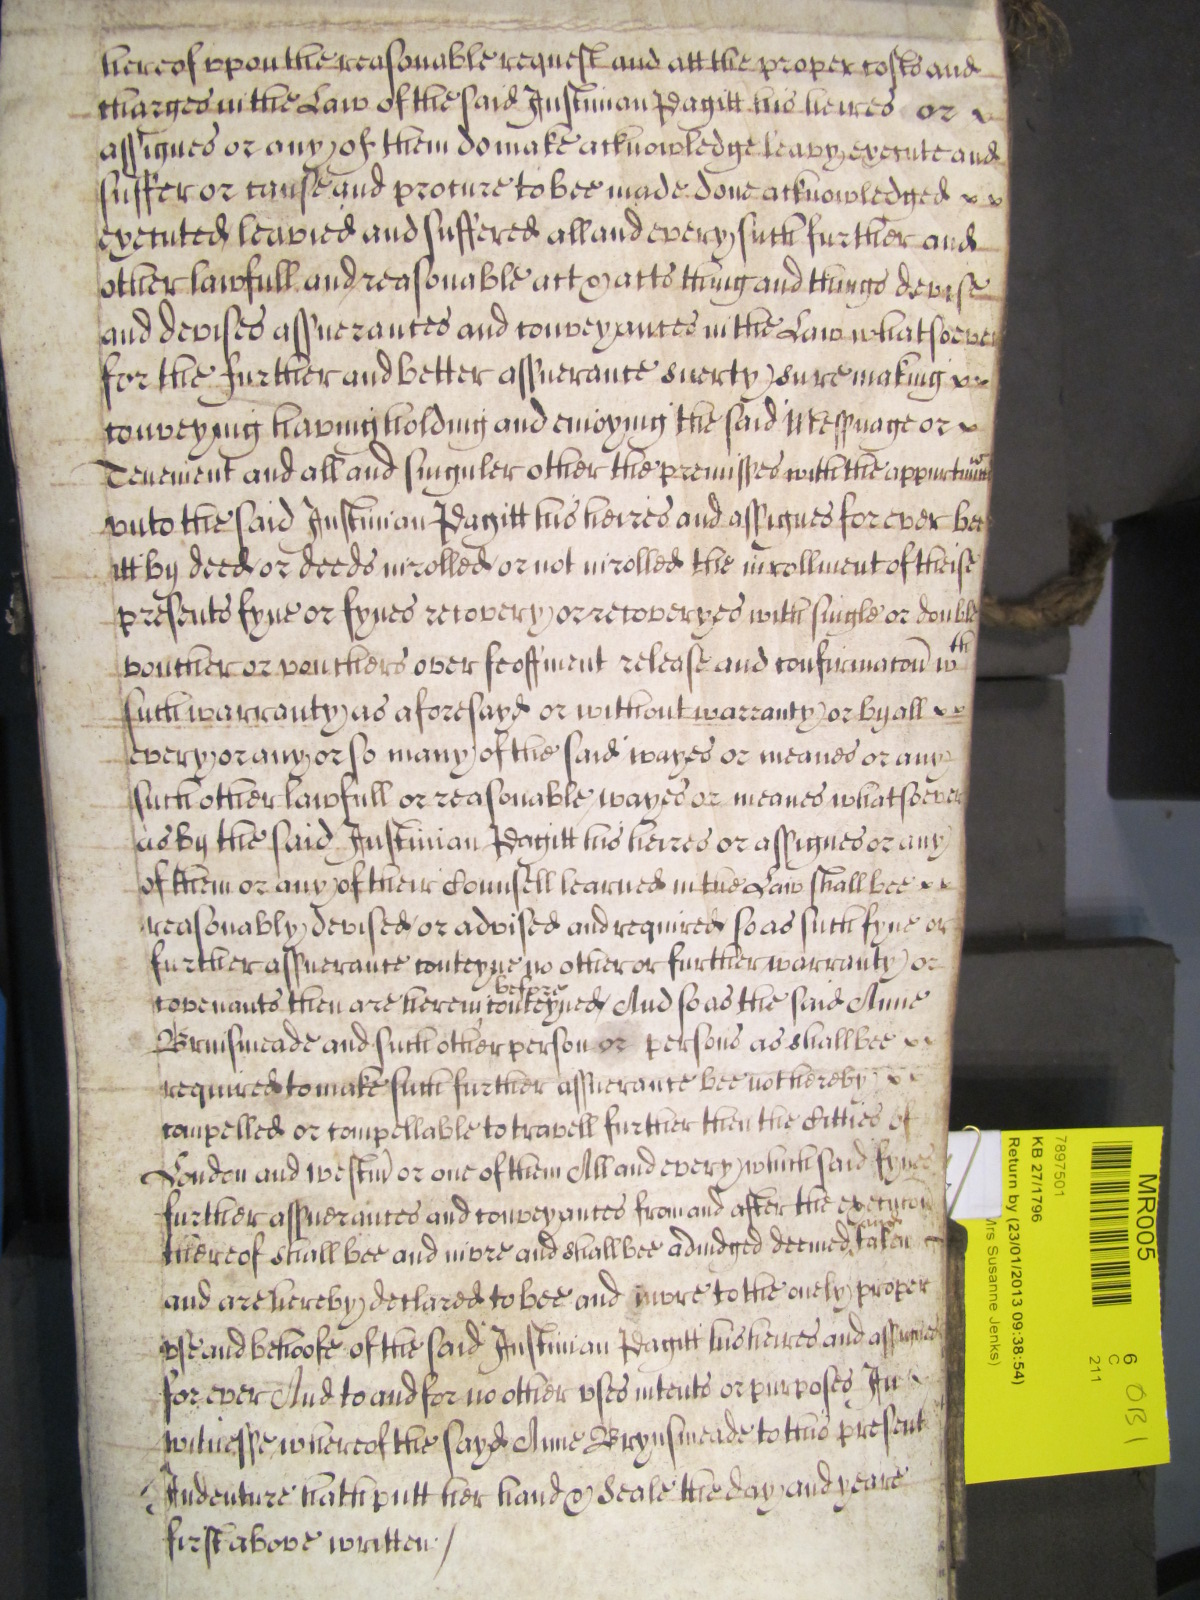 hereof vpon the reasonable request and att the proper costs and
charges in the Law of the said Justinian Pagitt his heires or
assignes or any of them do make acknowledge leavy execute and
suffer or cause and procure to bee made done acknowledged
executed leavied and suffered all and every such further and
other lawfull and reasonable act & acts thing and things devise
and devises assuerances and conveyances in the Law whatsoever
for the further and better assuerance suerty sure making
conveying having holding and enioying the said Messuage or
Tenement and all and singuler other the premisses with the appurtuncs
vnto the said Justinian Pagitt his heires and assignes for ever bee
itt by deed or deeds inrolled or not inrolled the inrollment of theise
presents fyne or fynes recovery or recoveryes with single or double
voucher or vouchers over feoffment release and confirmacon wth
such warranty as aforesayd or without warranty or by all
every or any or so many of the said wayes or meanes or any
such other lawfull or reasonable wayes or meanes whatsoever
as by the said Justinian Pagitt his heires or assignes or any
of them or any of their Counsell learned in the Law shall bee
reasonably devised or advised and required so as such fyne or
further assuerance conteyne no other or further warranty or
covenants then are herein before conteyned And so as the said Anne
Brinsmeade and such other person or persons as shall bee
required to make such further assuerance bee not hereby
compelled or compellable to travell further then the Citties of
London and Westm or one of them All and every which said fynes
further assuerances and conveyances from and after the execucon
thereof shall bee and inure and shall bee adiudged deemed and taken
and are hereby declared to bee and inure to the onely proper
vse and behoofe of the said Justinian Pagitt his heires and assignes
for ever And to and for no other vses intents or purposes In
witnesse whereof the sayd Anne Brynsmeade to this present
Indenture hath putt her hand & Seale the day and yeare
first above written /
MR005
6
C
211
OB 1
7897501
KB 27/1796
Return by (23/01/2013 09:38:54)
Mrs Susanne Jenks)